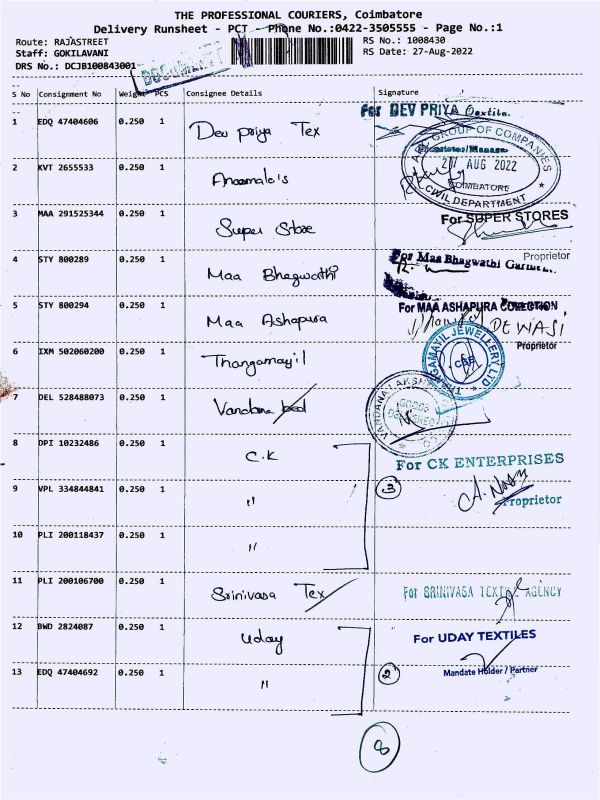 THE PROFESSIONAL COURIERS, Coimbatore
Delivery Runsheet - PCT - Phone No.:0422-3505555 - Page No.:1
Route: RAJASTREET RS No.: 1008430
Staff: GOKILAVANI RS Date: 27-Aug-2022
DRS No.: DCJB100843001
DOCUMENT
S No Consignment No Weight PCS Consignee Details Signature
1 EDQ 47404606 0.250 1 Dev priya Tex For DEV PRIYA Textile.
GROUP OF COMPANIES
27 AUG 2022
COIMBATORE
CIVIL DEPARTMENT
2 KVT 2655533 0.250 1 Anaamalai's
3 MAA 291525344 0.250 1 Super Store For SUPER STORES
Proprietor
4 STY 800289 0.250 1 Maa Bhagwathi For Maa Bhagwathi
5 STY 800294 0.250 1 Maa Ashapura For MAA ASHAPURA COLECTION
DEWASI
Proprietor
6 IXM 502060200 0.250 1 Thangamayil THANGAMAYIL JEWELLERY LTD
CBE
7 DEL 528488073 0.250 1 Vandana VANDANA LAKSH
GOODS
8 DPI 10232486 0.250 1 C.K For CK ENTERPRISES
9 VPL 334844841 0.250 1 " 3 A. Proprietor
10 PLI 200118437 0.250 1 "
11 PLI 200106700 0.250 1 Srinivasa Tex For SRINIVASA TEXTILE AGENCY
12 BWD 2824087 0.250 1 Uday For UDAY TEXTILES
13 EDQ 47404692 0.250 1 " 2 Mandate Holder / Partner
8